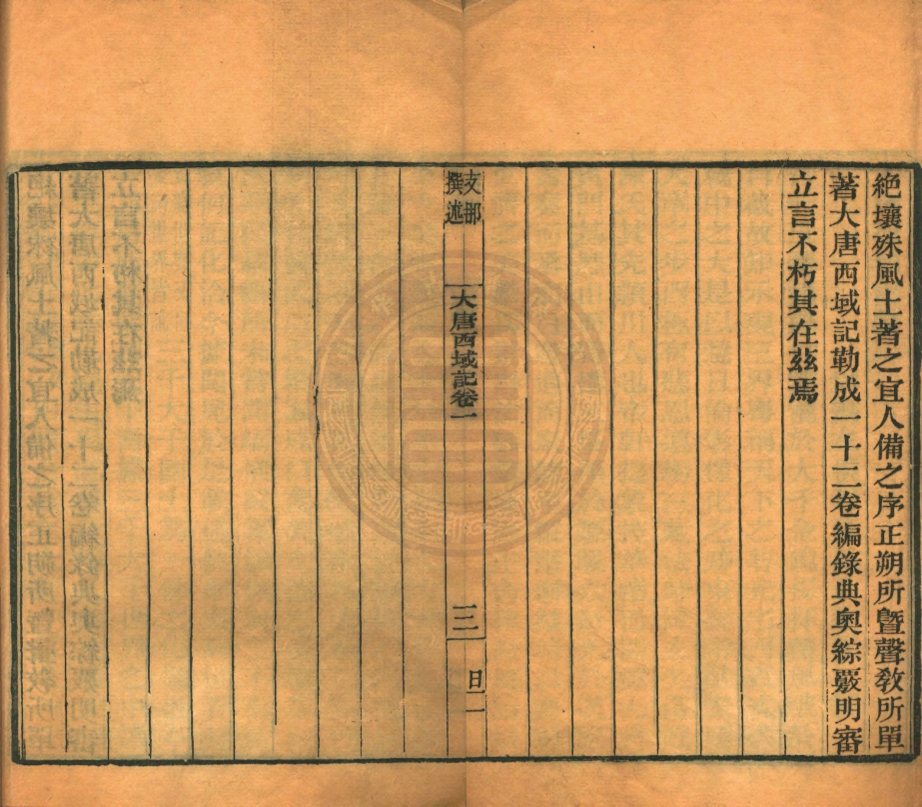 絶壤殊風土著之宜人備之序正朔所曁聲敎所單
著大唐西域記勒成一十二卷編錄典奧綜覈明審
立言不朽其在茲焉
支那
撰述
大唐西域記卷一
三
日一